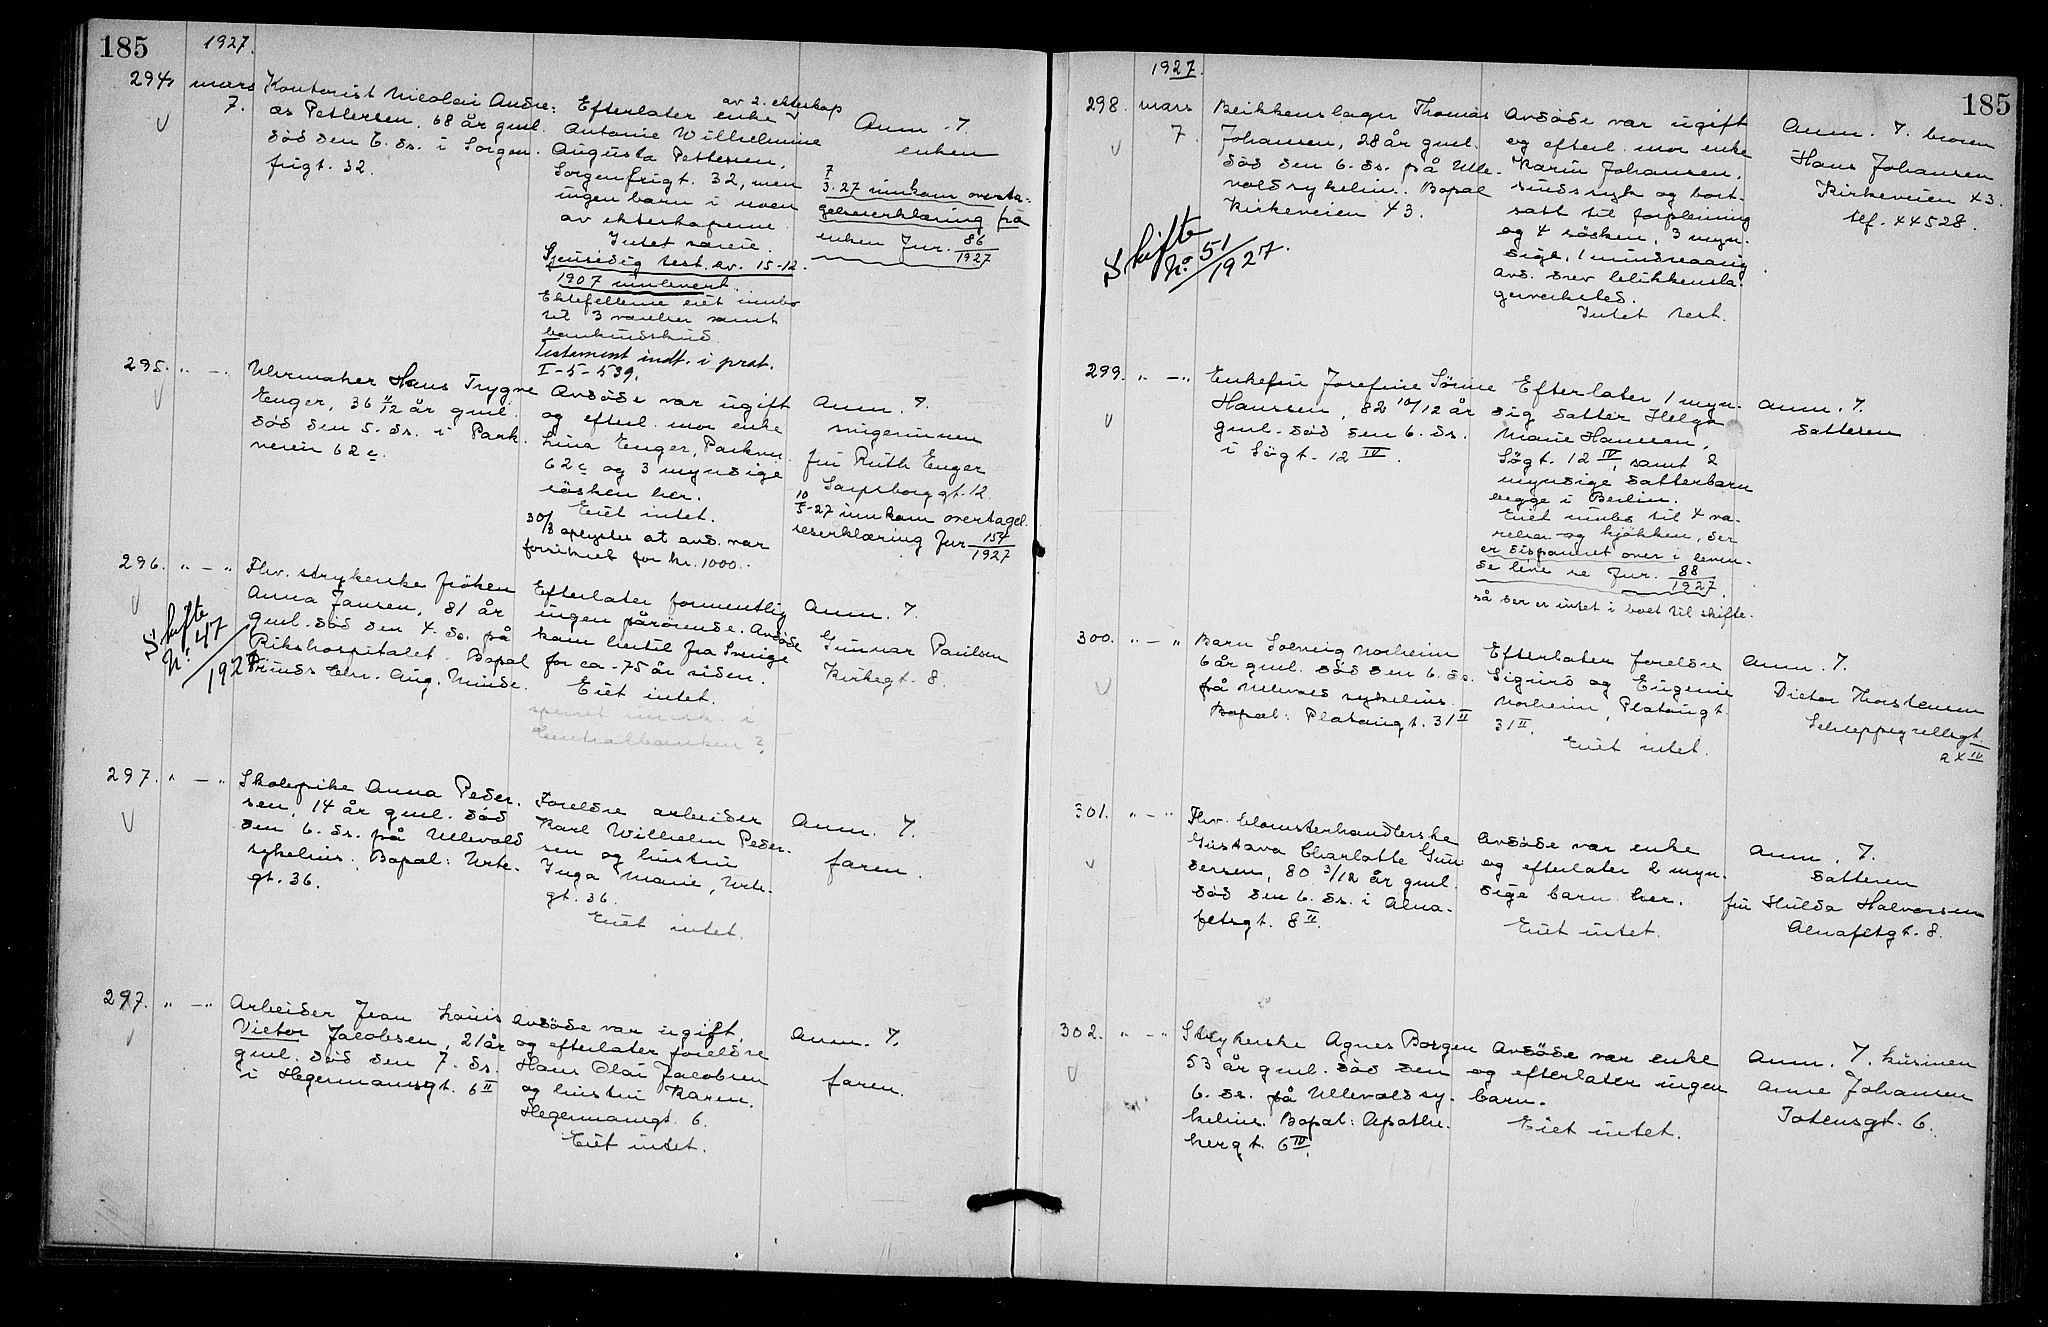 185
1927.
294. mars 7.
Kontorist Nicolai Andre:
as Pettersen. 68 år gml.
död den 6. ds. i Sorgen.
frigt. 32.
av 2. ekteskap
Efterlater enke
Antonie Wilhelmine
Augusta Pettersen,
Sorgenfrigt. 32, men
ingen barn i noen
av ekteskapene.
Intet særeie.
Gjensidig test. av. 15-12.
1907 innlevert.
Ektefellene eiet innbo
til 3 værelser samt
bankindskud.
Testament indt. i prot.
I-5-539.
Anm. 7.
enken
7/3.27 innkom overta-
gelseserklæring fra
enken Jur. 86/1927
295. " — "
Urmaker Hans Trygve
Enger, 36 11/12 år gml.
död den 5. ds. i Park.
veien 62c.
Avdöde var ugift
og efterl. mor enke
Lina Enger, Parkvn.
62c og 3 myndige
sösken her.
Eiet intet.
30/3 oplystes at avd. var
forsikret for kr. 1000..
Anm. 7.
svigerinnen
fru Ruth Enger
Sarpsborggt. 12.
10/5-27 innkom overtagel.
seserklæring Jur 154/1927
296. " — "
Skifte
Nr. 47/1927
Fhv. strykerske fröken
Anna Jansen, 81 år
gml. död den 4. ds. på
Rikshospitalet. Bopæl
Prinds Chr. Aug. Minde.
Efterlater formentlig
ingen pårörende. Avdöde
kom hertil fra Sverige
for ca. 75 år siden.
Eiet intet.
Centralbanken?
Anm. 7.
Gunnar Paulsen
Kirkegt. 8.
297. " — "
Skolepike Anna Peder-
sen, 14 år gml. död
den 6. ds. på Ullevold
sykehus. Bopæl: Urte-
gt. 36.
Foreldre arbeider
Karl Wilhelm Peder-
sen og hustru
Inga Marie, Urte-
gt. 36.
Eiet intet.
Anm. 7.
faren.
297. " — "
Arbeider Jean Louis
Victor Jacobsen, 21 år
gml. död den 7. ds.
i Hegermannsgt. 6 II
Avdöde var ugift
og efterlater foreldre
Hans Olai Jacobsen
og hustru Karen.
Hegermannsgt. 6.
Eiet intet.
Anm. 7.
faren.
1927.
185
298. mars 7.
Skifte
No 51/1927.
Blikkenslager Thomas
Johansen, 28 år gml.
död den 6. ds. på Ulle-
voldsykehus. Bopæl
Kirkeveien 43.
Avdöde var ugift
og efterl. mor enke
Karin Johansen,
sindssyk og bort-
satt til forpleining
og 4 sösken, 3 myn-
dige, 1 mindreaarig.
Avd. drev blikkensla-
gerverksted.
Intet test.
Anm. 7. broren
Hans Johansen
Kirkeveien 43.
tlf. 44528.
299. " — "
Enkefru Josefine Sörine
Hanssen, 82 10/12 år
gml. död den 6. ds.
i Sögt. 12 IV.
Efterlater 1 myn-
dig datter Helga
Marie Hanssen,
Sögt. 12 IV, samt 2
myndige datterbarn
begge i Berlin.
Eiet innbo til 4 væ-
relser og kjökken, der
er disponert over i leven-
de live se Jur. 88/1927.
så der er intet i boet til skifte.
Anm. 7.
datteren
300. " — "
Barn Solveig Norheim
6 år gml. död den 6. ds.
på Ullevold sykehus.
Bopæl: Platougt. 31 II
Efterlater foreldre
Sigurd og Eugenie
Norheim, Platougt.
31 II.
Eiet intet.
Anm. 7.
Victor Thorstensen
Schleppegrellsgt.
301. " — "
Fhv. blomsterhandlerske
Gustava Charlotte Gun-
dersen, 80 3/12 år gml.
död den 6. ds. i Alna-
fetgt. 8 II.
Avdöde var enke
og efterlater 2 myn-
dige barn her.
Eiet intet.
Anm. 7.
datteren
fru Hulda Halvorsen
Alnafetgt. 8.
302. " — "
Strykerske Agnes Borgen
53 år gml. död den
6. ds. på Ullevold sy-
kehus. Bopæl: Apothe-
kergt. 6 IV.
Avdöde var enke
og efterlater ingen
barn.
Eiet intet.
Anm. 7. kusinen
Anne Johansen
Totensgt. 6.